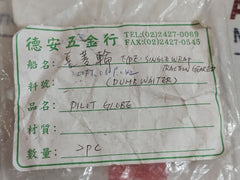 德安五金行
TEL:(02)2427-0069
FAX:(02)2427-0545
船名: TYPE: SINGLE WRAP
TRACTION GEARED
料號: (DUMB WAITER)
品名: PILOT GLOBE
材質:
數量: 2PC